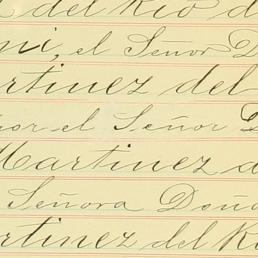 del Rio d
ni, el Señor D
rtinez del
por el Señor D
Martinez d
Señora Doña
rtinez del R